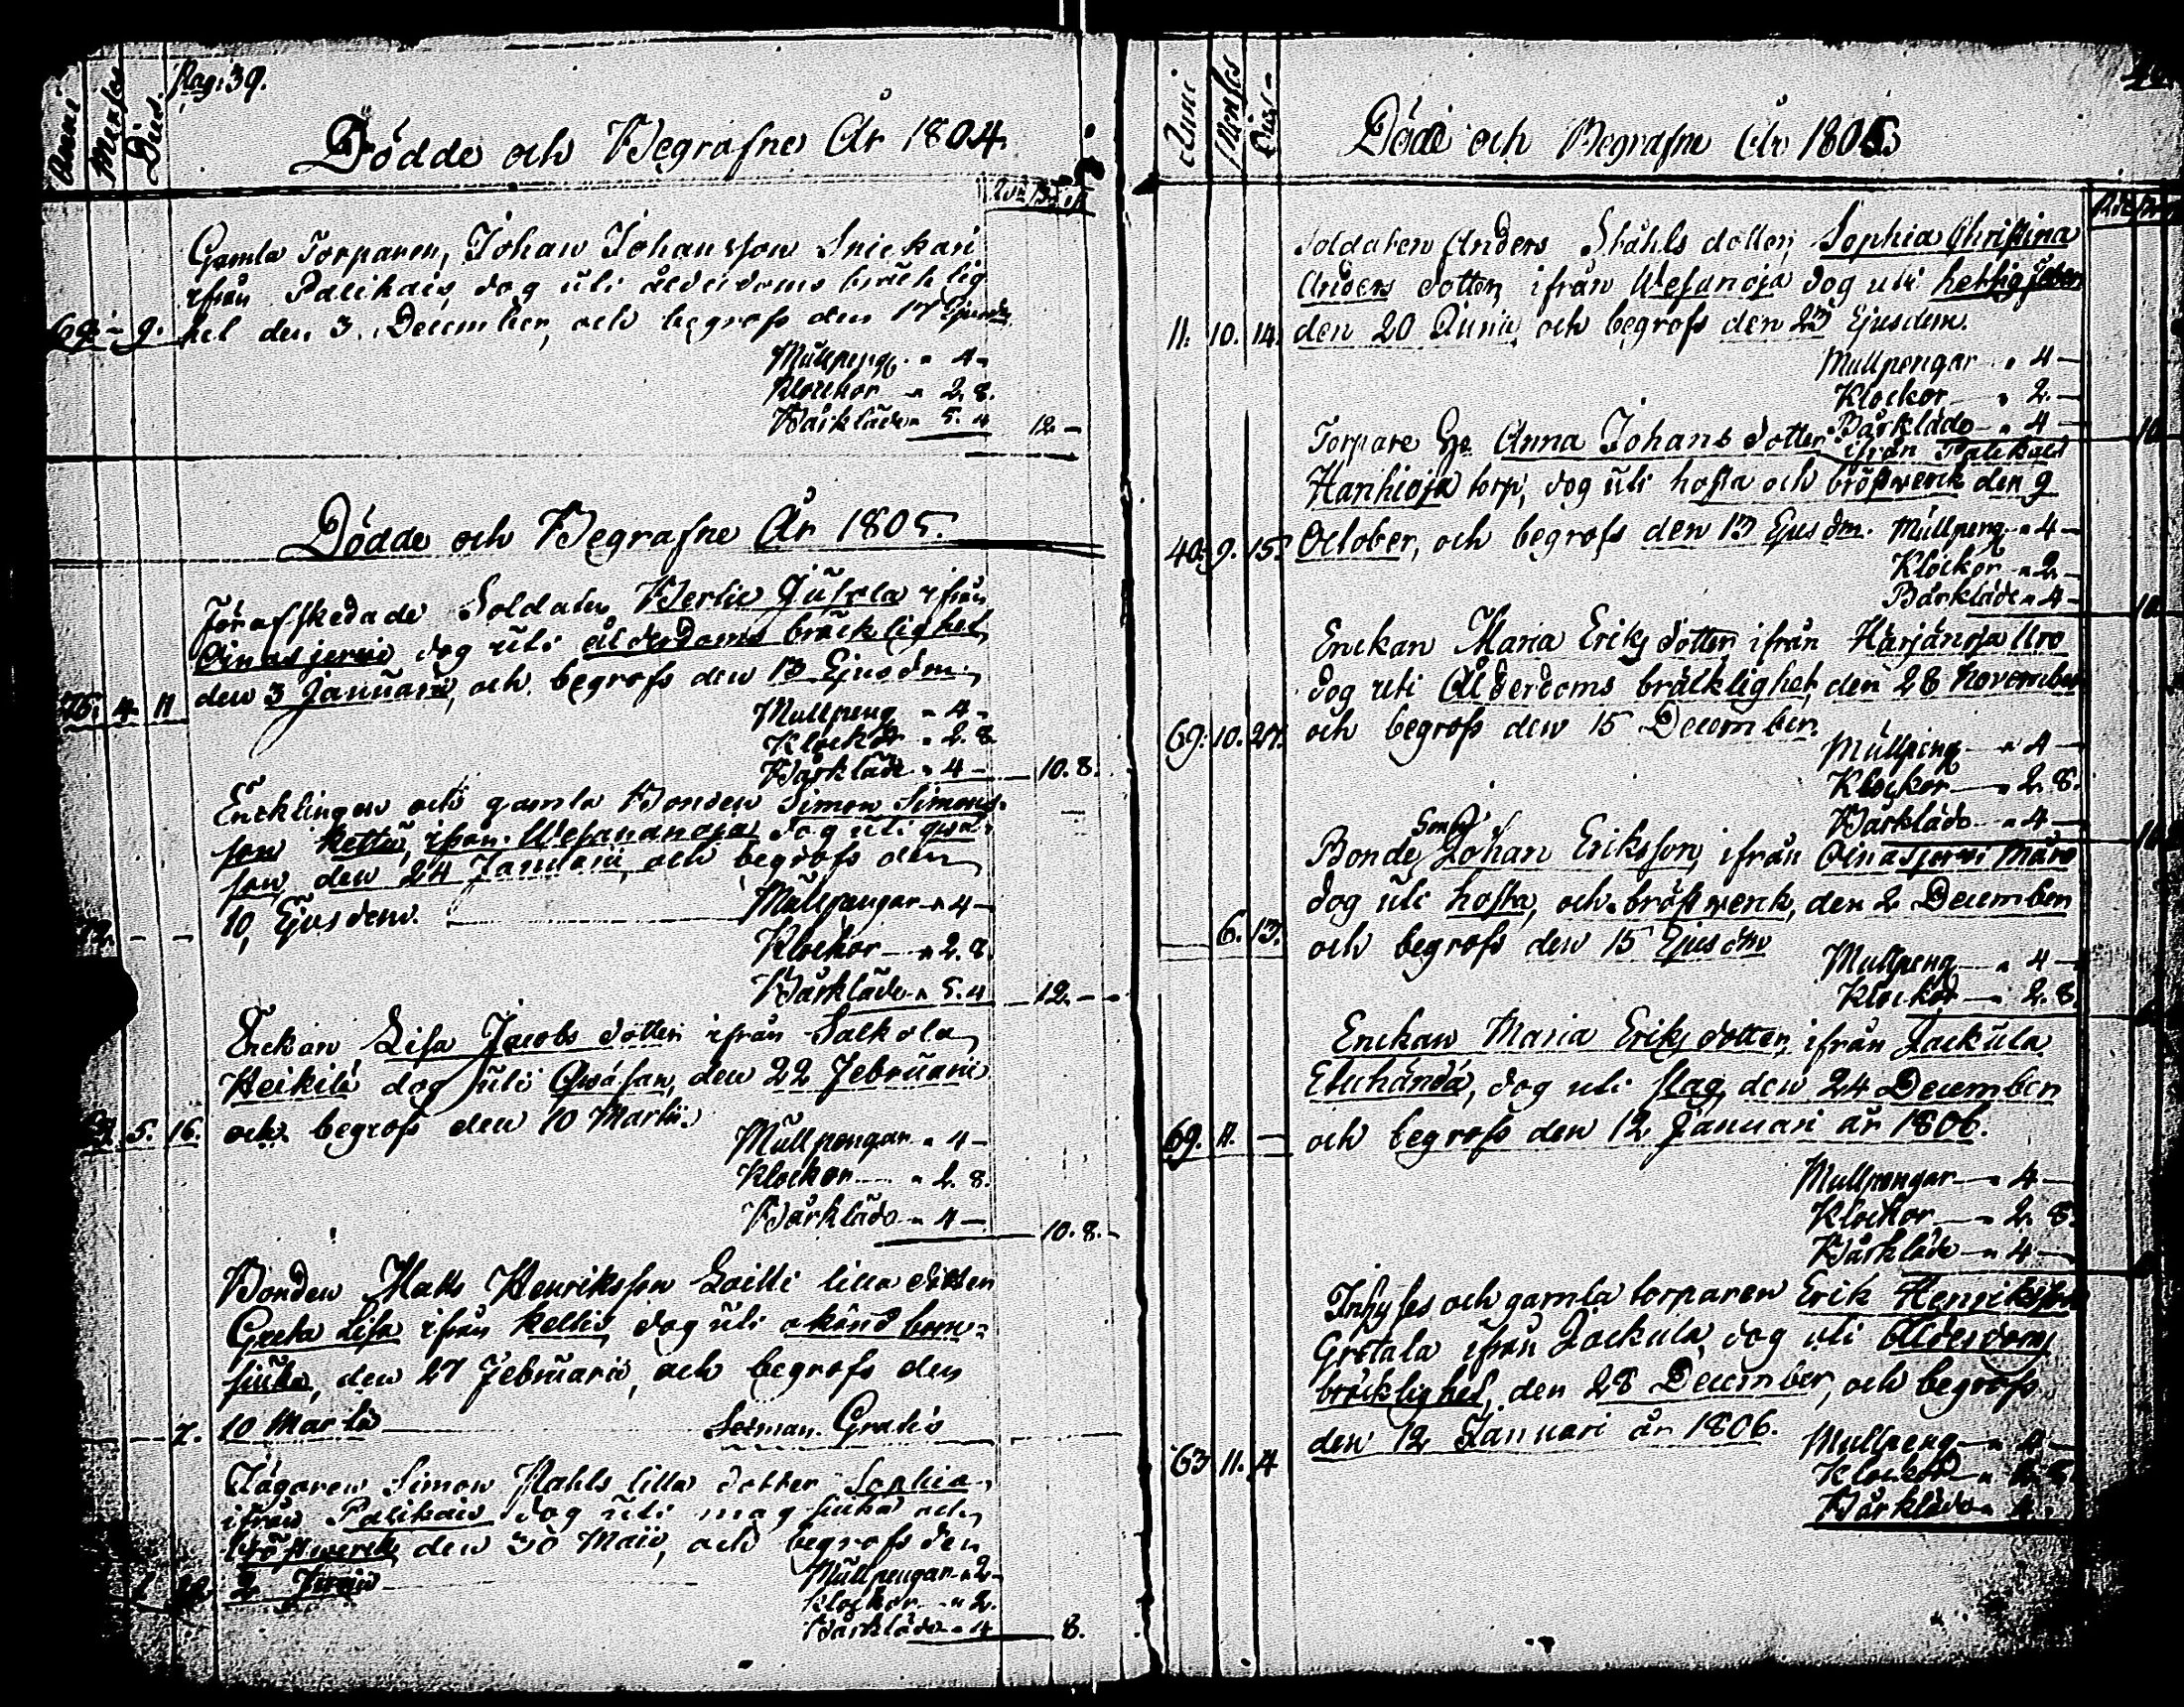 Pag: 39.
Anni Menses Dies.
Dödde och Begrafne År 1804.
Gamla Torparen, Johan Johansson Snickari
ifrån Palikais, dog uti ålderdoms bräcklig
69. - 9. het den 3. December, och begrofs den 17 Ejusdm.
Mullpeng. " 4 -
Klockor " 2. 8.
Bårkläde " 5. 4 12. -
Dödde och Begrafne År 1805.
Förafskedade Soldaten Bertil Jutila ifrån
Oinasjervi dog uti ålderdoms bräcklighet,
76. 4. 11 den 3 Januarii, och begrofs den 13 Ejusdm.
Mullpeng " 4 -
Klockor " 2. 8.
Bårkläde " 4 - 10. 8.
Encklingen och gamla Bonden Simon Simons-
son Kettu, ifrån dog uti
den 24 Januarii, och begrofs den
10, Ejusdem. Mullpengar " 4 -
Klockor " 2. 8.
Bårkläde " 5. 4 12. -
Enckan Lisa Jacobs dotter ifrån Salkola
Heikilä dog uti den 22 Februarii
5. 16. och begrofs den 10 Martii.
Mullpengar " 4 -
Klockor " 2. 8.
Bårkläde " 4 - 10. 8. -
Bonden Matts Henriksson Loitti lilla dotter
Greta Lisa ifrån Keltis, dog uti okänd barn-
siuka, den 27 Februarii, och begrofs den
7. 10 Martii Gratis
Simon Stahls lilla dotter Sophia
ifrån Palikais dog uti mag siuka och
bröstwerck, den 30 Maii, och begrofs den
2 Junii Mullpengar " 2 -
Klockor " 2.
Bårkläde " 4 8.
Anni Menses Dies
Döde och Begrafne År 1805
Soldaten Anders Ståhls dotter, Sophia Christina
Anders dotter, ifrån Wesunoja dog uti hettsig feber
11. 10. 14. den 20 Junii, och begrofs den 23 Ejusdem.
Mullpengar " 4 -
Klockor " 2. -
Bårkläde " 4 - 10
Torpare Anna Johans dotter ifrån Palikais
Hanhioja torp, dog uti hosta och bröstwerck den 9
40. 9. 15. October, och begrofs den 13 Ejusdm. Mullpeng. " 4 -
Klockor " 2 -
Bårkläde " 4 - 10
Enckan Maria Eriks dotter ifrån Härjänoja Uro
dog uti Ålderdoms bräcklighet, den 28 November
69. 10. 27. och begrofs den 15 December.
Mullpeng " 4 -
Klockor " 2. 8.
Bårkläde " 4 -
Sonen
Bonde Johan Eriksson, ifrån Oinasjervi
dog uti hosta, och bröstwerck, den 2 December
6. 13. och begrofs den 15 Ejusdm
Mullpeng " 4 -
Klockor " 2. 8.
Enckan Maria Eriks dotter, ifrån Jackula
dog uti slag, den 24 December
69. 11. - och begrofs den 12 Januari år 1806.
Mullpengar " 4 -
Klockor " 2. 8.
Bårkläde " 4 -
Inhyses och gamla torparen Erik Henriksson
Grötala ifrån Jackula, dog uti Ålderdoms
bräcklighet, den 28 December, och begrofs
63 11. 4 den 12 Januari år 1806.
Mullpeng " 4 -
Klockor
Bårkläde " 4 -